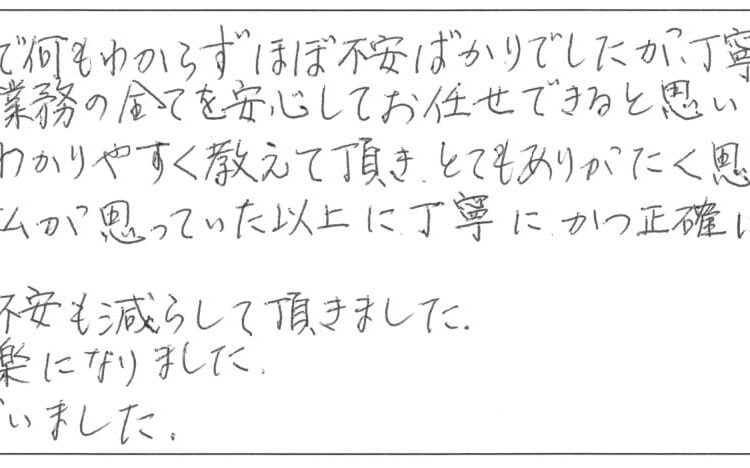 で何もわからずほぼ不安ばかりでしたが、丁寧
業務の全てを安心してお任せできると思い
わかりやすく教えて頂き、とてもありがたく思
ムが思っていた以上に丁寧に、かつ正確に
不安も減らして頂きました。
楽になりました。
いました。